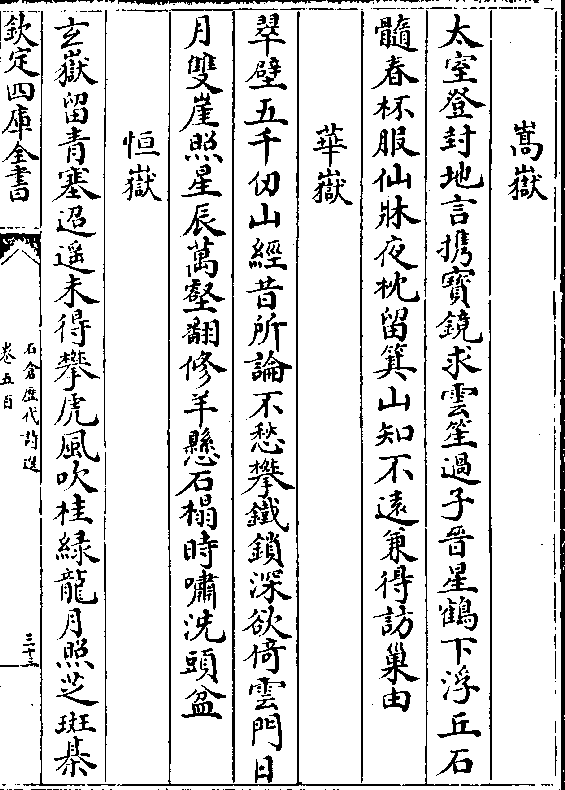 嵩嶽
太室登封地言攜寶鏡求雲笙過子晉星鶴下浮丘石
髓春杯服仙牀夜枕留箕山知不遠兼得訪巢由
華嶽
翠壁五千仞山經昔所論不愁攀鐵鎖深欲倚雲門日
月雙崖照星辰萬壑翻修羊懸石榻時嘯洗頭盆
恒嶽
玄嶽留青塞迢遥未得攀虎風吹桂緑龍月照芝斑棊
欽定四庫全書
石倉歷代詩選
卷五百
三十三